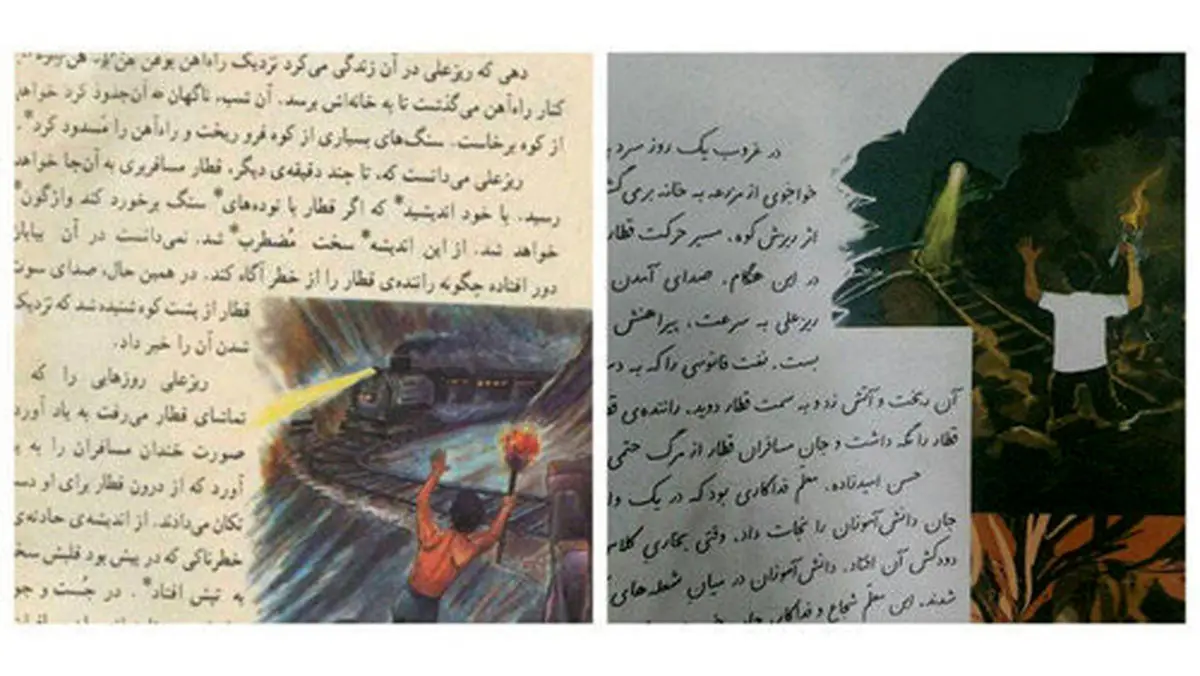 دهی که ریزعلی در آن زندگی می‌کرد نزدیک راه‌آهن بود.
کنار راه‌آهن می‌گذشت تا به خانه‌اش برسد. آن شب، ناگهان
از کوه برخاست. سنگ‌های بسیاری از کوه فرو ریخت و راه‌آهن را مسدود کرد*.
ریزعلی می‌دانست که، تا چند دقیقه‌ی دیگر، قطار مسافربری به آن‌جا خواهد
رسید. با خود اندیشید* که اگر قطار با توده‌های* سنگ برخورد کند واژگون*
خواهد شد. از این اندیشه* سخت مُضطرب* شد. نمی‌دانست در آن بیابان
دور افتاده چگونه راننده‌ی قطار را از خطر آگاه کند. در همین حال، صدای سوت
قطار از پشت کوه شنیده شد که نزدیک
شدن آن را خبر داد.
ریزعلی روزهایی را که
تماشای قطار می‌رفت به یاد آورد
صورت خندان مسافران را به
آورد که از درون قطار برای او دست
تکان می‌دادند. از اندیشه‌ی حادثه‌ی
خطرناکی که در پیش بود قلبش سخت
به تپش افتاد*. در جُست و جو
در غروب یک روز سرد
خواجوی از مزرعه به خانه برمی‌گش
از ریزش کوه، مسیر حرکت قطار
در این هنگام، صدای آمدن
ریزعلی به سرعت، پیراهنش
بست. نفت فانوسی را که به دس
آن ریخت و آتش زد و به سمت قطار دوید. راننده‌ی ق
قطار را نگه داشت و جان مسافران قطار از مرگ حتمی
حسن امیدزاده، معلم فداکاری بود که در یک
جان دانش‌آموزان را نجات داد. وقتی بخاری کلاس
دودکش آن افتاد. دانش‌آموزان در میان شعله‌های
شدند. این معلم شجاع و فداکار